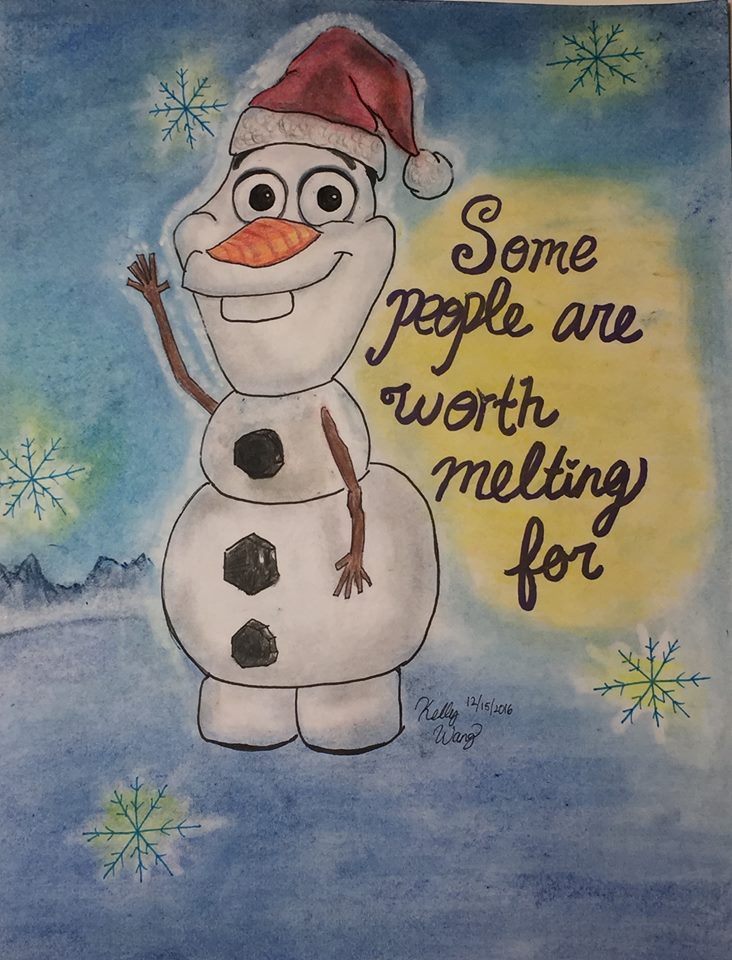 Some
people are
worth
melting
for
Kelly 12/15/2016
Wang